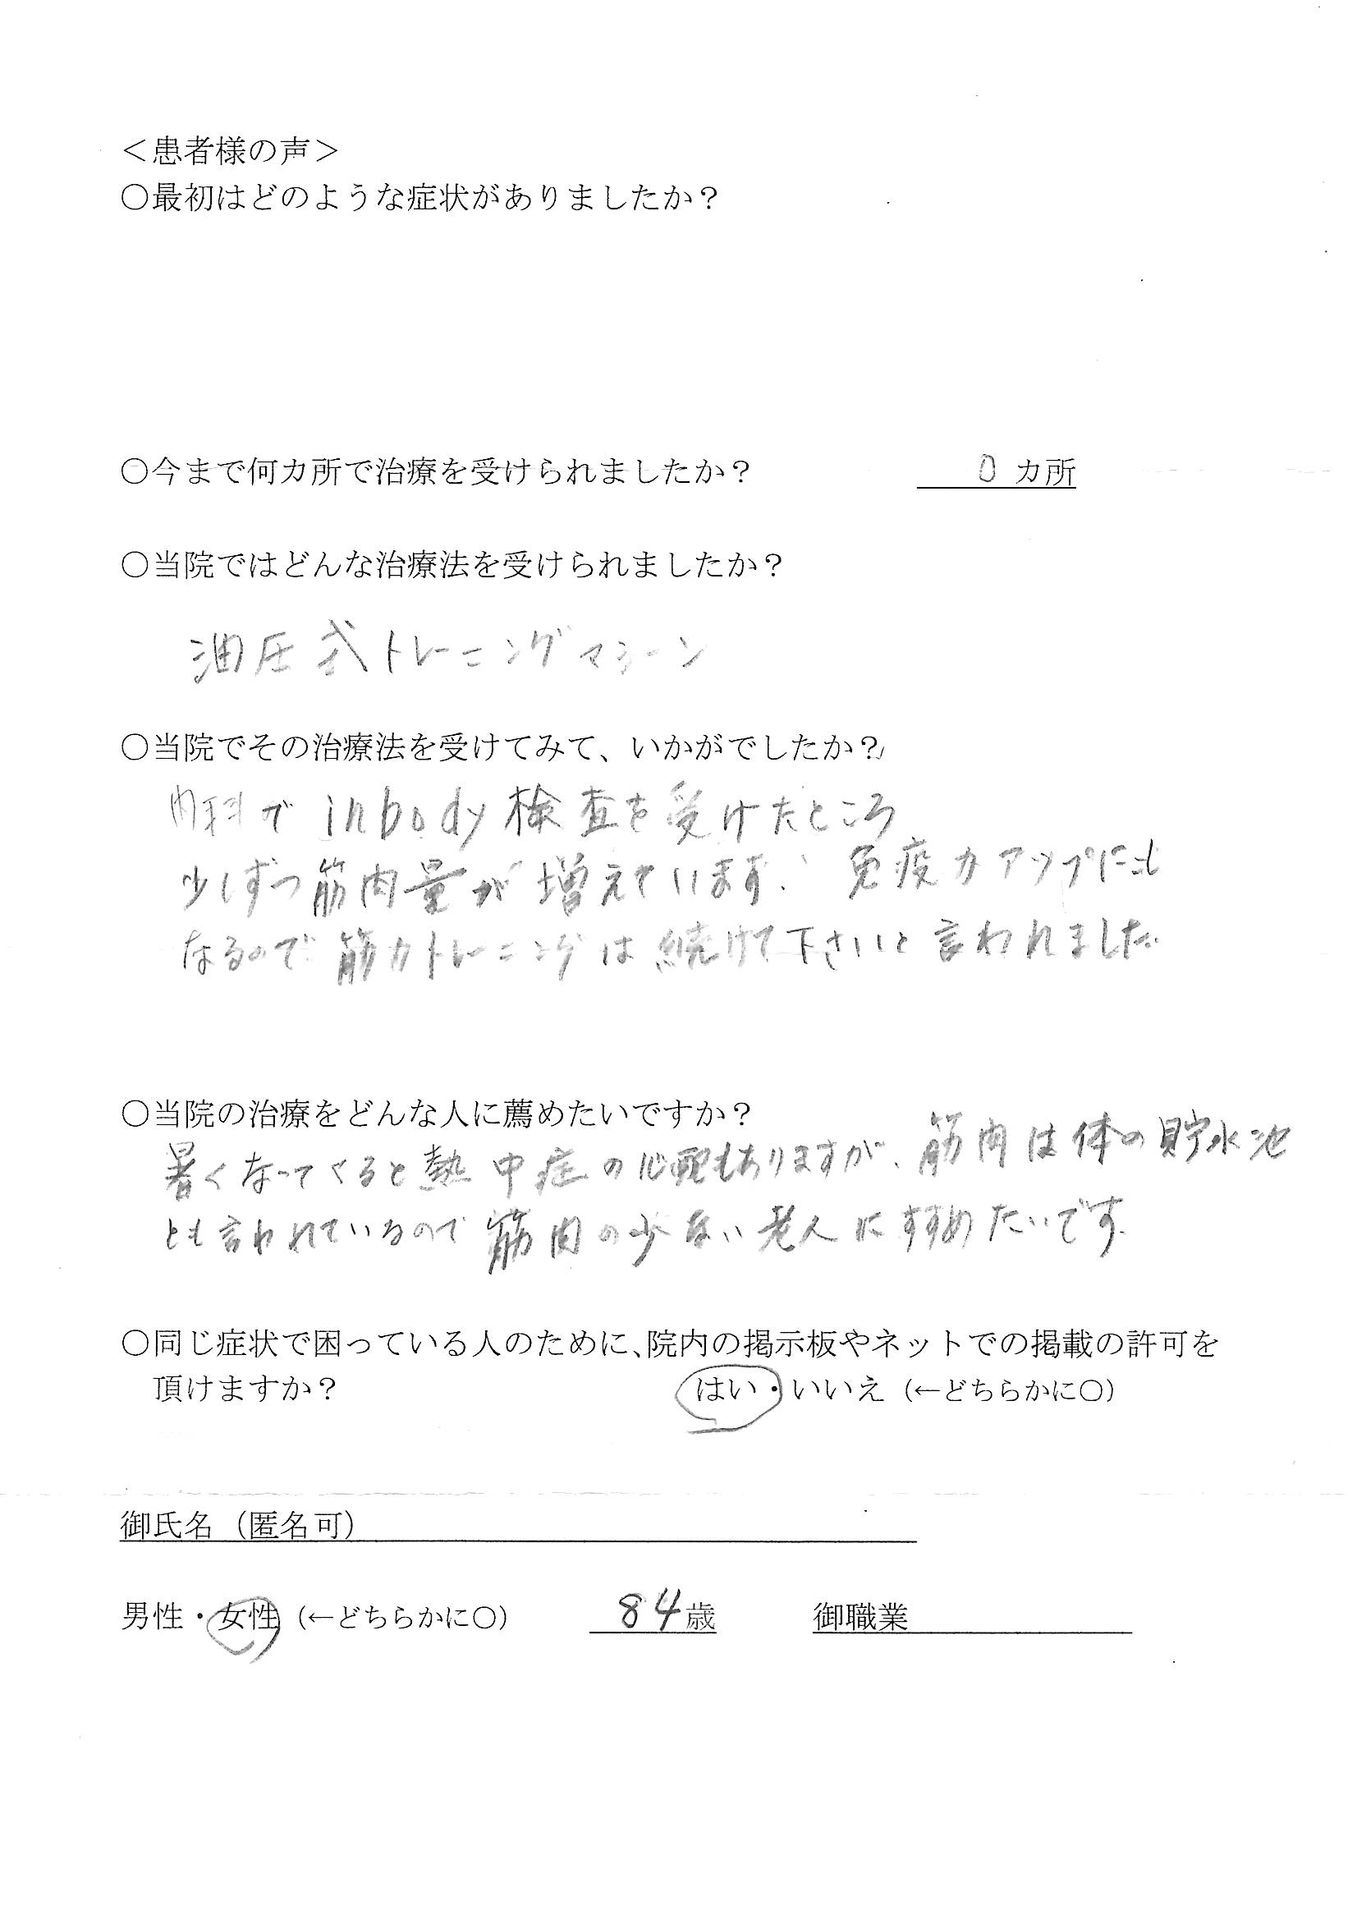 ＜患者様の声＞
○最初はどのような症状がありましたか？
○今まで何カ所で治療を受けられましたか？ 0 カ所
○当院ではどんな治療法を受けられましたか？
油圧式トレーニングマシーン
○当院でその治療法を受けてみて、いかがでしたか？
内科で inbody 検査を受けたところ
少しずつ筋肉量が増えています。免疫力アップにも
なるので筋力トレーニングは続けて下さいと言われました。
○当院の治療をどんな人に薦めたいですか？
暑くなってくると熱中症の心配もありますが、筋肉は体の貯水池
とも言われているので筋肉の少ない老人にすすめたいです。
○同じ症状で困っている人のために、院内の掲示板やネットでの掲載の許可を
頂けますか？ はい・いいえ（←どちらかに○）
御氏名（匿名可）
男性・女性（←どちらかに○） 84歳 御職業